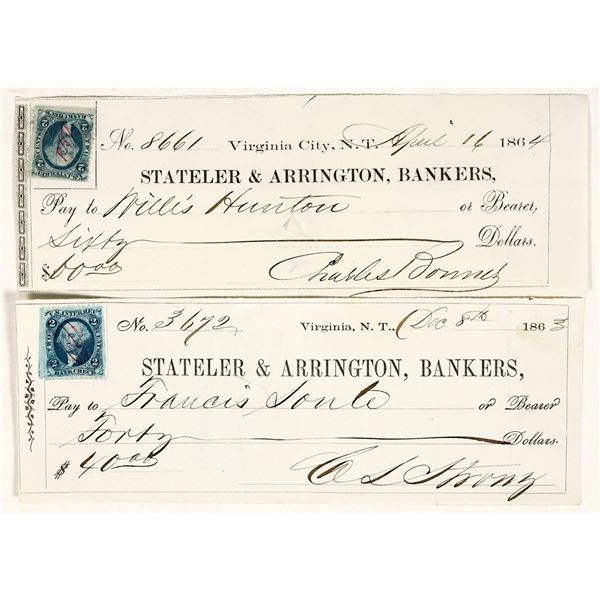 No. 8661 Virginia City, N.T. April 16 1864
STATELER & ARRINGTON, BANKERS,
Pay to Willis Hunton or Bearer,
Sixty Dollars.
$60.00 Charles Bonner
U.S. INTER. REV.
2 2
BANK CHECK
No. 3672 Virginia, N. T., Dec 8th 1863
STATELER & ARRINGTON, BANKERS,
Pay to Francis Soule or Bearer
Forty Dollars.
$40.00 C L Strong